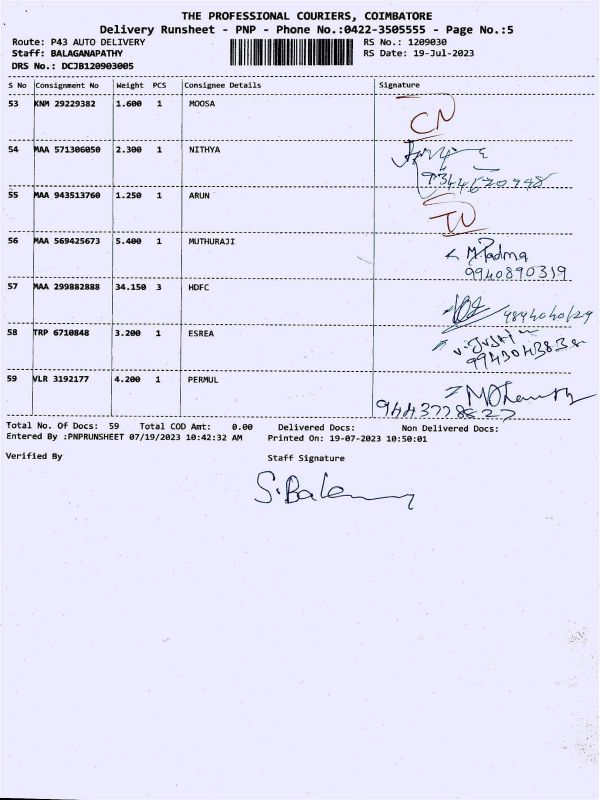 THE PROFESSIONAL COURIERS, COIMBATORE
Delivery Runsheet - PNP - Phone No.:0422-3505555 - Page No.:5
Route: P43 AUTO DELIVERY RS No.: 1209030
Staff: BALAGANAPATHY RS Date: 19-Jul-2023
DRS No.: DCJB120903005
S No Consignment No Weight PCS Consignee Details Signature
53 KNM 29229382 1.600 1 MOOSA CN
54 MAA 571306050 2.300 1 NITHYA
9344620948
55 MAA 943513760 1.250 1 ARUN
56 MAA 569425673 5.400 1 MUTHURAJI M.Padma
9940890319
57 MAA 299882888 34.150 3 HDFC
58 TRP 6710848 3.200 1 ESREA
59 VLR 3192177 4.200 1 PERMUL
Total No. Of Docs: 59 Total COD Amt: 0.00 Delivered Docs: Non Delivered Docs:
Entered By :PNPRUNSHEET 07/19/2023 10:42:32 AM Printed On: 19-07-2023 10:50:01
Verified By Staff Signature
S.Bala